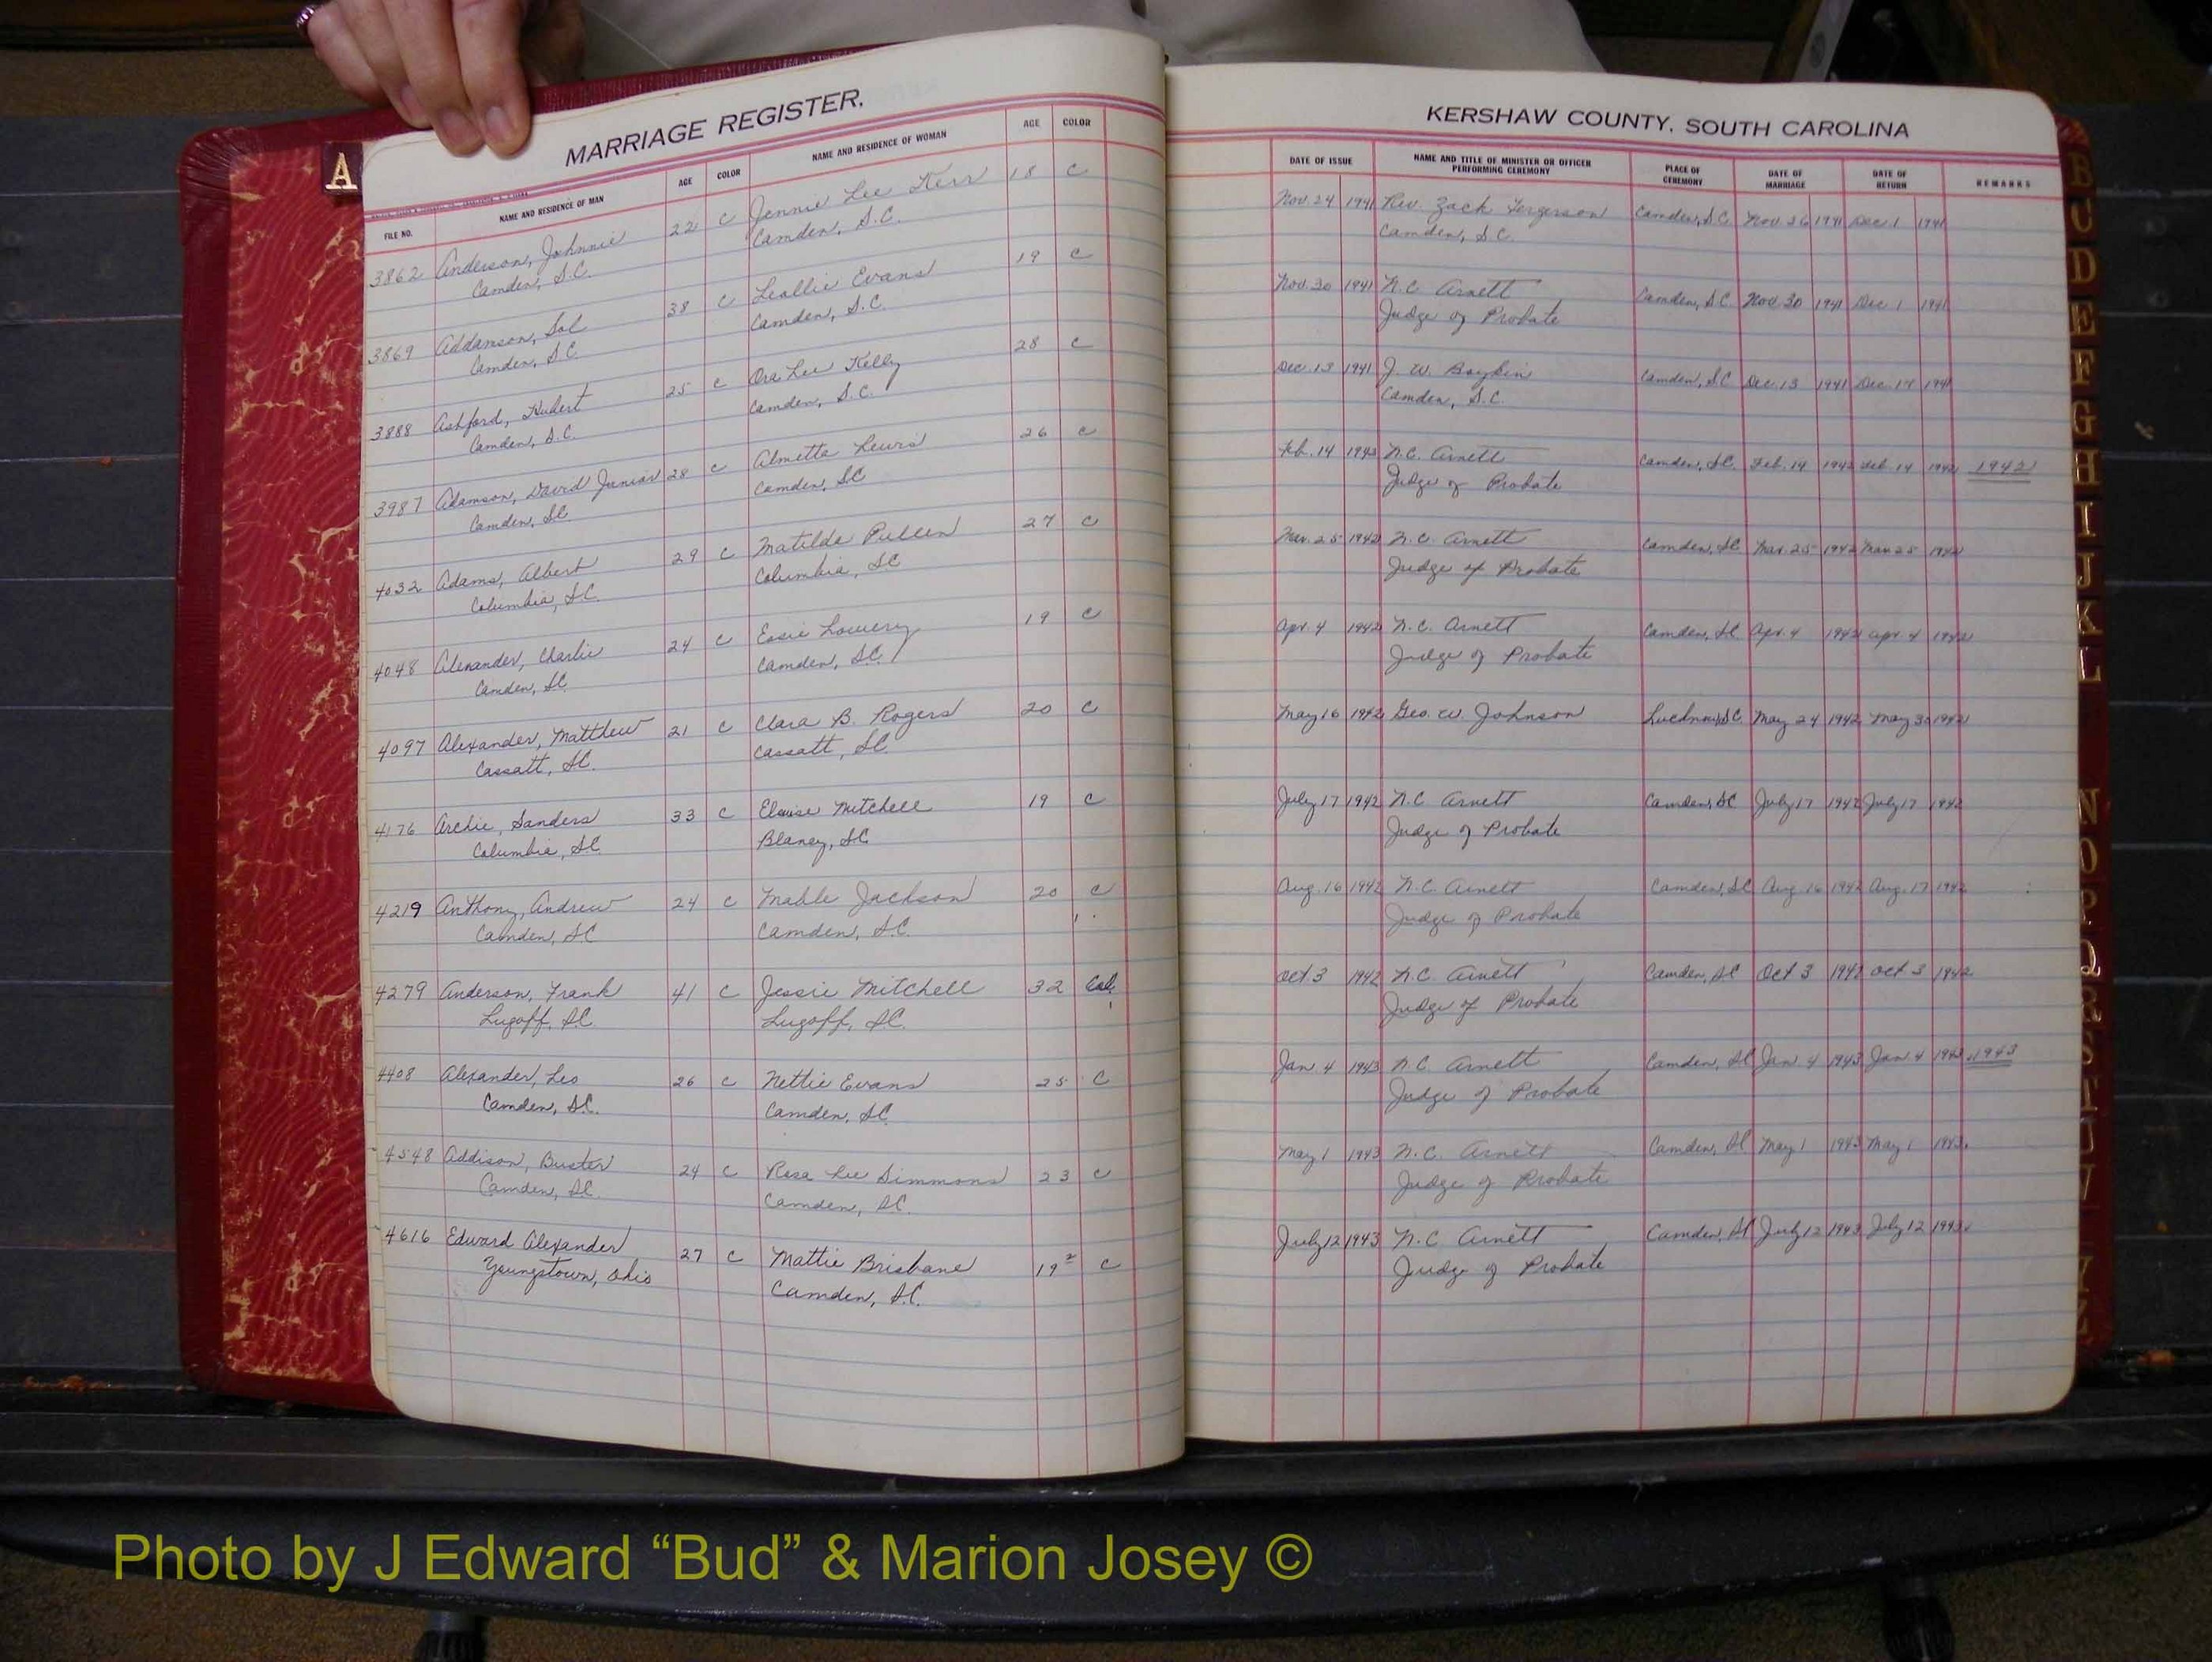 A
MARRIAGE REGISTER.
FILE NO. NAME AND RESIDENCE OF MAN AGE COLOR NAME AND RESIDENCE OF WOMAN AGE COLOR
3862 Anderson, Johnnie 22 C Jennie Lee Kerr 18 C
Camden, S.C. Camden, S.C.
3869 Addamson, Sol 38 C Leallie Evans 19 C
Camden, S.C. Camden, S.C.
3888 Ashford, Hubert 25 C Ora Lee Kelly 28 C
Camden, S.C. Camden, S.C.
3987 Adamson, David Junior 28 C Almetta Lewis 26 C
Camden, SC Camden, SC
4032 Adams, Albert 29 C Matilda Pullen 27 C
Columbia, S.C. Columbia, SC
4048 Alexander, Charlie 24 C Essie Lowery 19 C
Camden, SC Camden, SC
4097 Alexander, Matthew 21 C Clara B. Rogers 20 C
Cassatt, SC. Cassatt, SC
4176 Archie, Sanders 33 C Elouise Mitchell 19 C
Columbia, SC. Blaney, SC
4219 Anthony, Andrew 24 C Mable Jackson 20 C
Camden, SC Camden, S.C.
4279 Anderson, Frank 41 C Jessie Mitchell 32 Col.
Lugoff, SC. Lugoff, SC.
4408 Alexander, Leo 26 C Nettie Evans 25 C
Camden, S.C. Camden, SC
4548 Addison, Buster 24 C Rosa Lee Simmons 23 C
Camden, SC. Camden, SC.
4616 Edward Alexander 27 C Mattie Brisbane 19 C
Youngstown, Ohio Camden, S.C.
KERSHAW COUNTY, SOUTH CAROLINA
DATE OF ISSUE NAME AND TITLE OF MINISTER OR OFFICER PERFORMING CEREMONY PLACE OF CEREMONY DATE OF MARRIAGE DATE OF RETURN REMARKS
Nov. 24 1941 Rev. Zack Fergerson Camden, S.C. Nov. 26 1941 Dec. 1 1941
Camden, S.C.
Nov. 30 1941 N.C. Arnett Camden, S.C. Nov. 30 1941 Dec. 1 1941
Judge of Probate
Dec. 13 1941 J. W. Boykin Camden, S.C. Dec. 13 1941 Dec. 1941
Camden, S.C.
Feb. 14 N.C. Arnett Camden, S.C. Feb. 14 1942 Feb. 14 1942 1942
Judge of Probate
Mar. 25 1942 N.C. Arnett Camden, SC Mar. 25 1942 Mar. 25 1942
Judge of Probate
Apr. 4 1942 N.C. Arnett Camden, SC Apr. 4 1942 Apr. 4 1942
Judge of Probate
May 16 1942 Geo. W. Johnson May 24 1942 May 30 1942
July 17 1942 N.C. Arnett Camden, SC July 17 1942 July 17 1942
Judge of Probate
Aug. 16 1942 N.C. Arnett Camden, SC Aug. 16 1942 Aug. 17 1942
Judge of Probate
Oct 3 1942 N.C. Arnett Camden, SC Oct 3 1942 Oct. 3 1942
Judge of Probate
Jan. 4 1943 N.C. Arnett Camden, SC Jan. 4 1943 Jan. 4 1943 1943
Judge of Probate
May 1 1943 N.C. Arnett Camden, SC May 1 1943 May 1 1943.
Judge of Probate
July 12 1943 N.C. Arnett Camden, SC July 12 1943 July 12 1943.
Judge of Probate
B
C
D
E
F
G
H
I
J
K
L
N
O
P
Q
R
S
T
U
V
Y
Z
Photo by J Edward “Bud” & Marion Josey ©